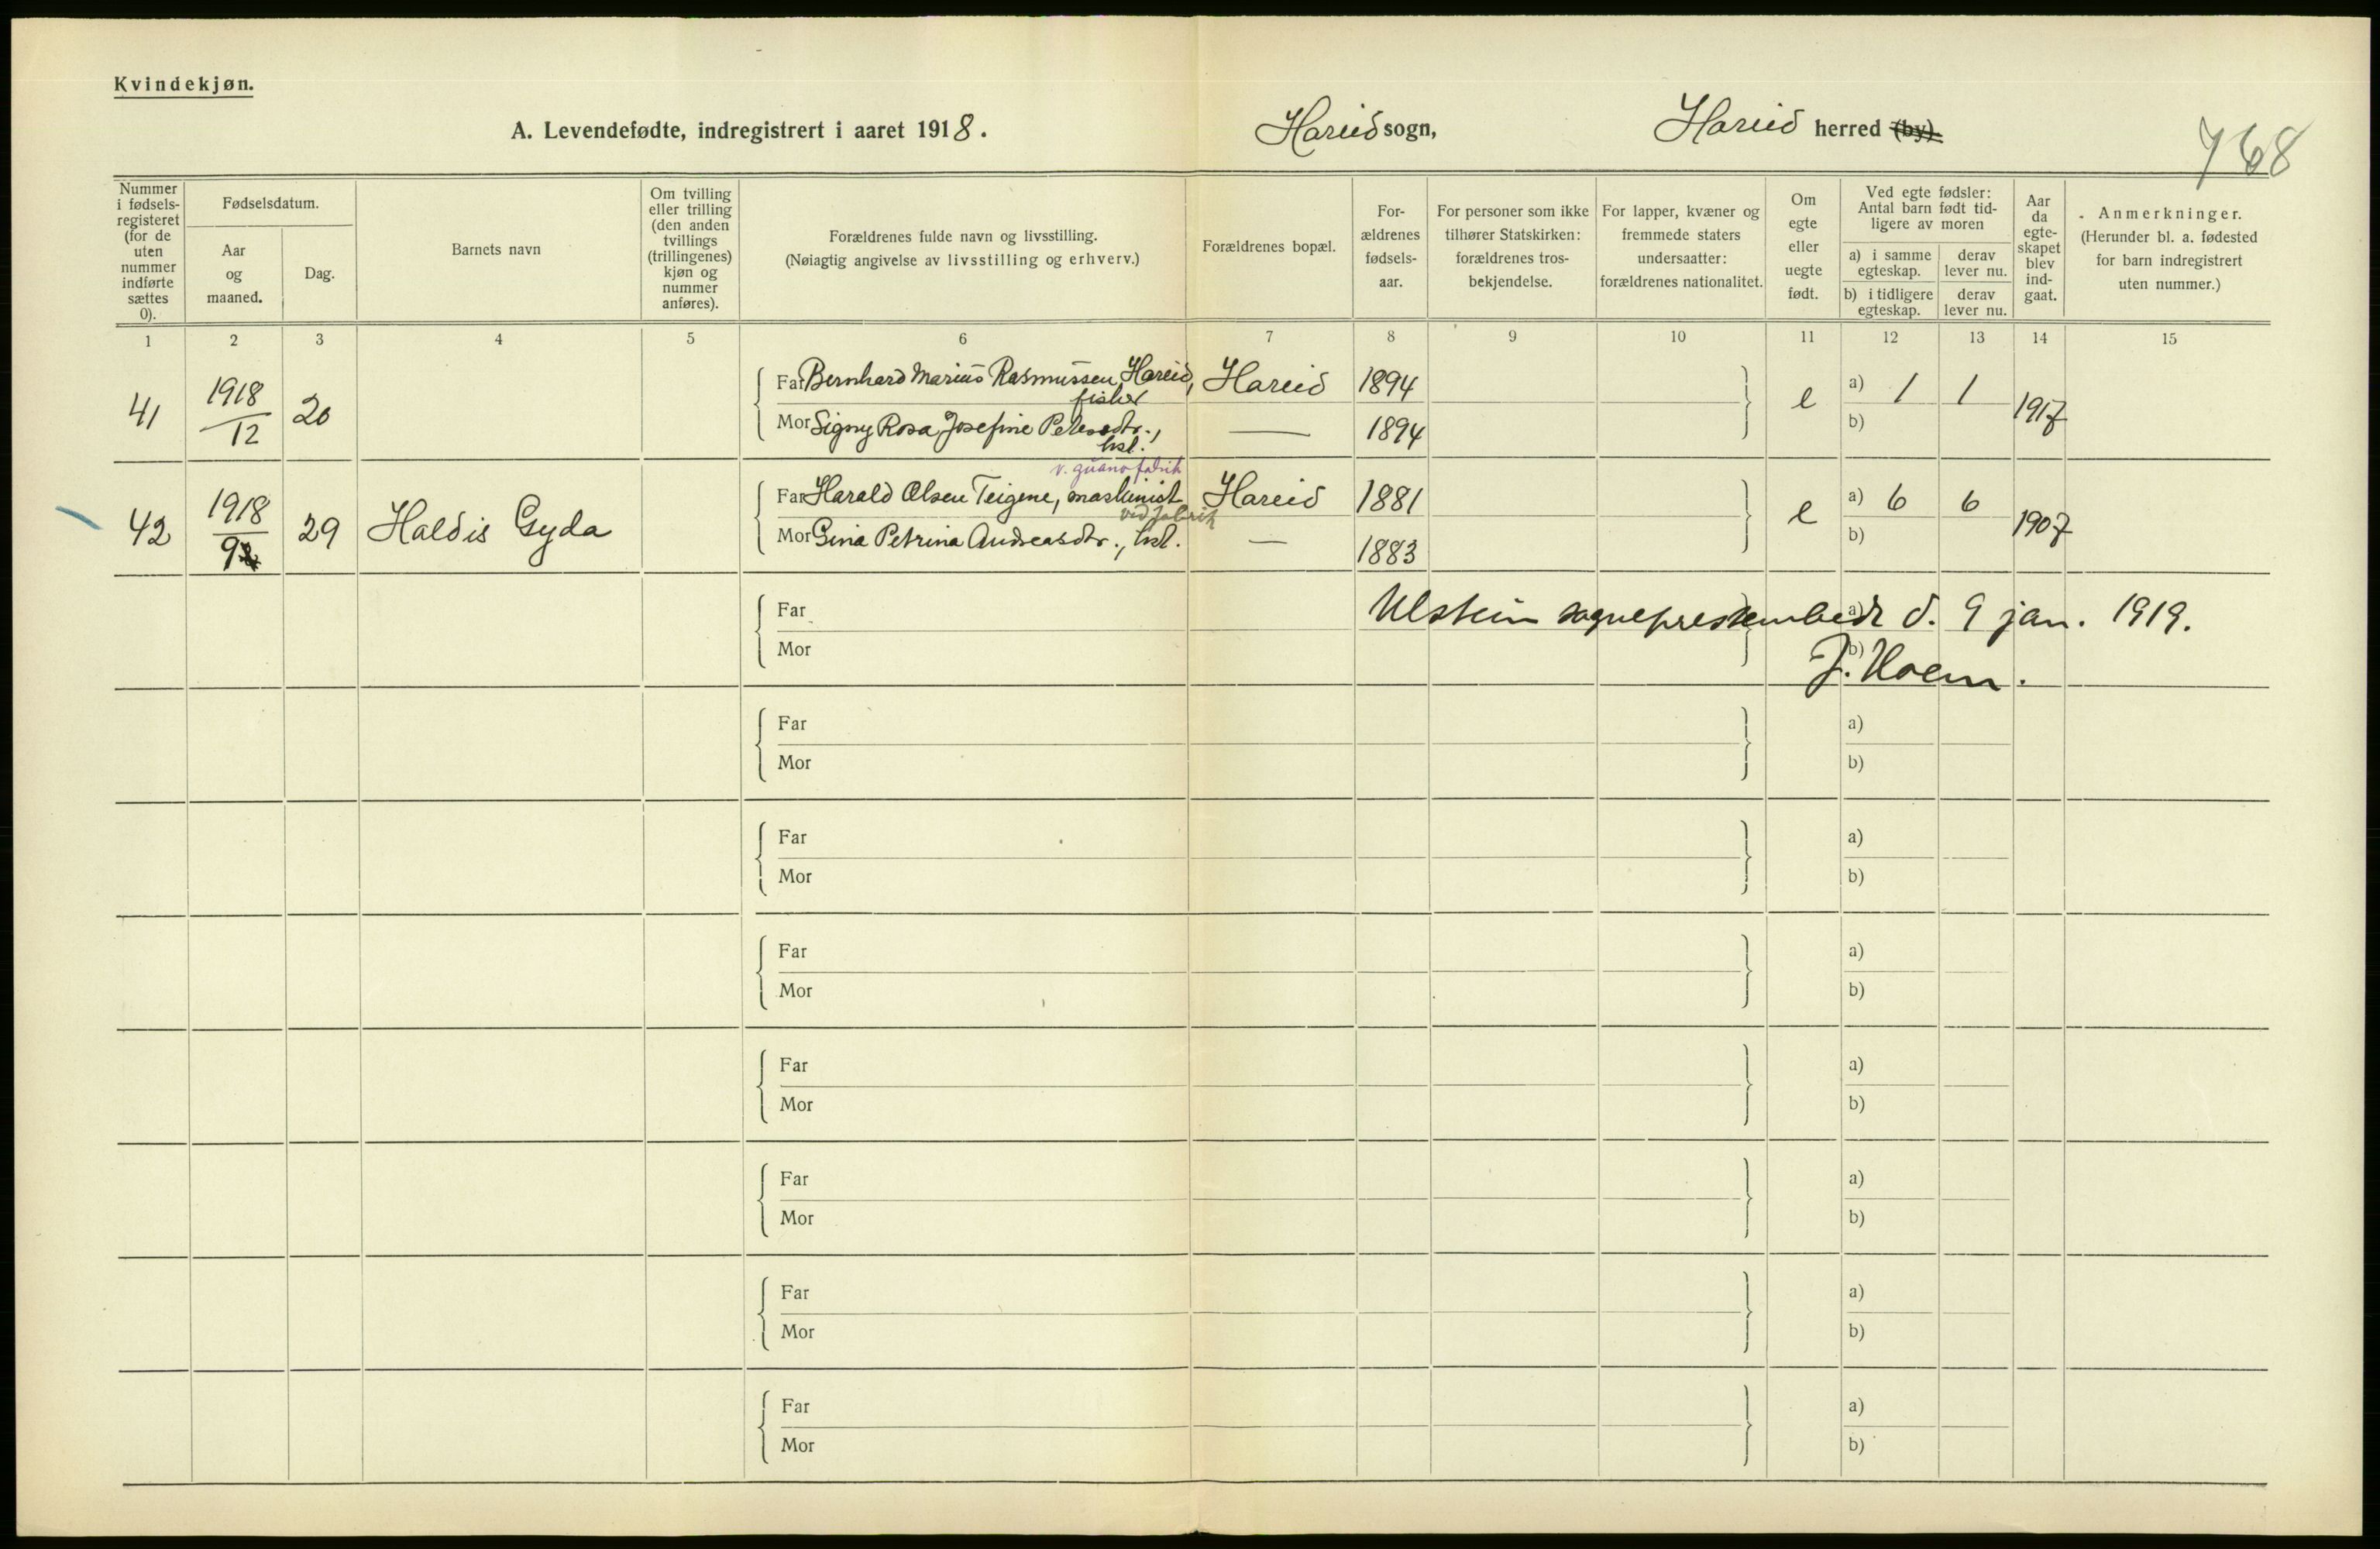 Kvindekjøn.
A. Levendefødte, indregistrert i aaret 1918. Hareid sogn, Hareid herred (by).
768
Nummer i fødselsregisteret (for de uten nummer indførte sættes 0).
Fødselsdatum.
Aar og maaned.
Dag.
Barnets navn
Om tvilling eller trilling (den anden tvillings (trillingenes) kjøn og nummer anføres).
Forældrenes fulde navn og livsstilling.
(Nøiagtig angivelse av livsstilling og erhverv.)
Forældrenes bopæl.
Forældrenes fødselsaar.
For personer som ikke tilhører Statskirken: forældrenes trosbekjendelse.
For lapper, kvæner og fremmede staters undersaatter: forældrenes nationalitet.
Om egte eller uegte født.
Ved egte fødsler: Antal barn født tidligere av moren
a) i samme egteskap.
derav lever nu.
b) i tidligere egteskap.
derav lever nu.
Aar da egteskapet blev indgaat.
Anmerkninger.
(Herunder bl. a. fødested for barn indregistrert uten nummer.)
1 2 3 4 5 6 7 8 9 10 11 12 13 14 15
41 1918/12 20
Far Bernhard Marius Rasmussen Hareid, fisker Hareid 1894
Mor Signy Rosa Josefine Petersdtr., hst. — 1894
e a) 1 1 b) 1917
v. guanofabrik
42 1918/9 29 Haldis Gyda
Far Harald Olsen Teigene, maskinist Hareid 1881
ved fabrik
Mor Gina Petrina Andreasdtr., hst. — 1883
e a) 6 6 b) 1907
Far
Mor
a)
b)
Ulstein sogneprestembede d. 9 jan. 1919.
J. Hoem.
Far
Mor
a)
b)
Far
Mor
a)
b)
Far
Mor
a)
b)
Far
Mor
a)
b)
Far
Mor
a)
b)
Far
Mor
a)
b)
Far
Mor
a)
b)